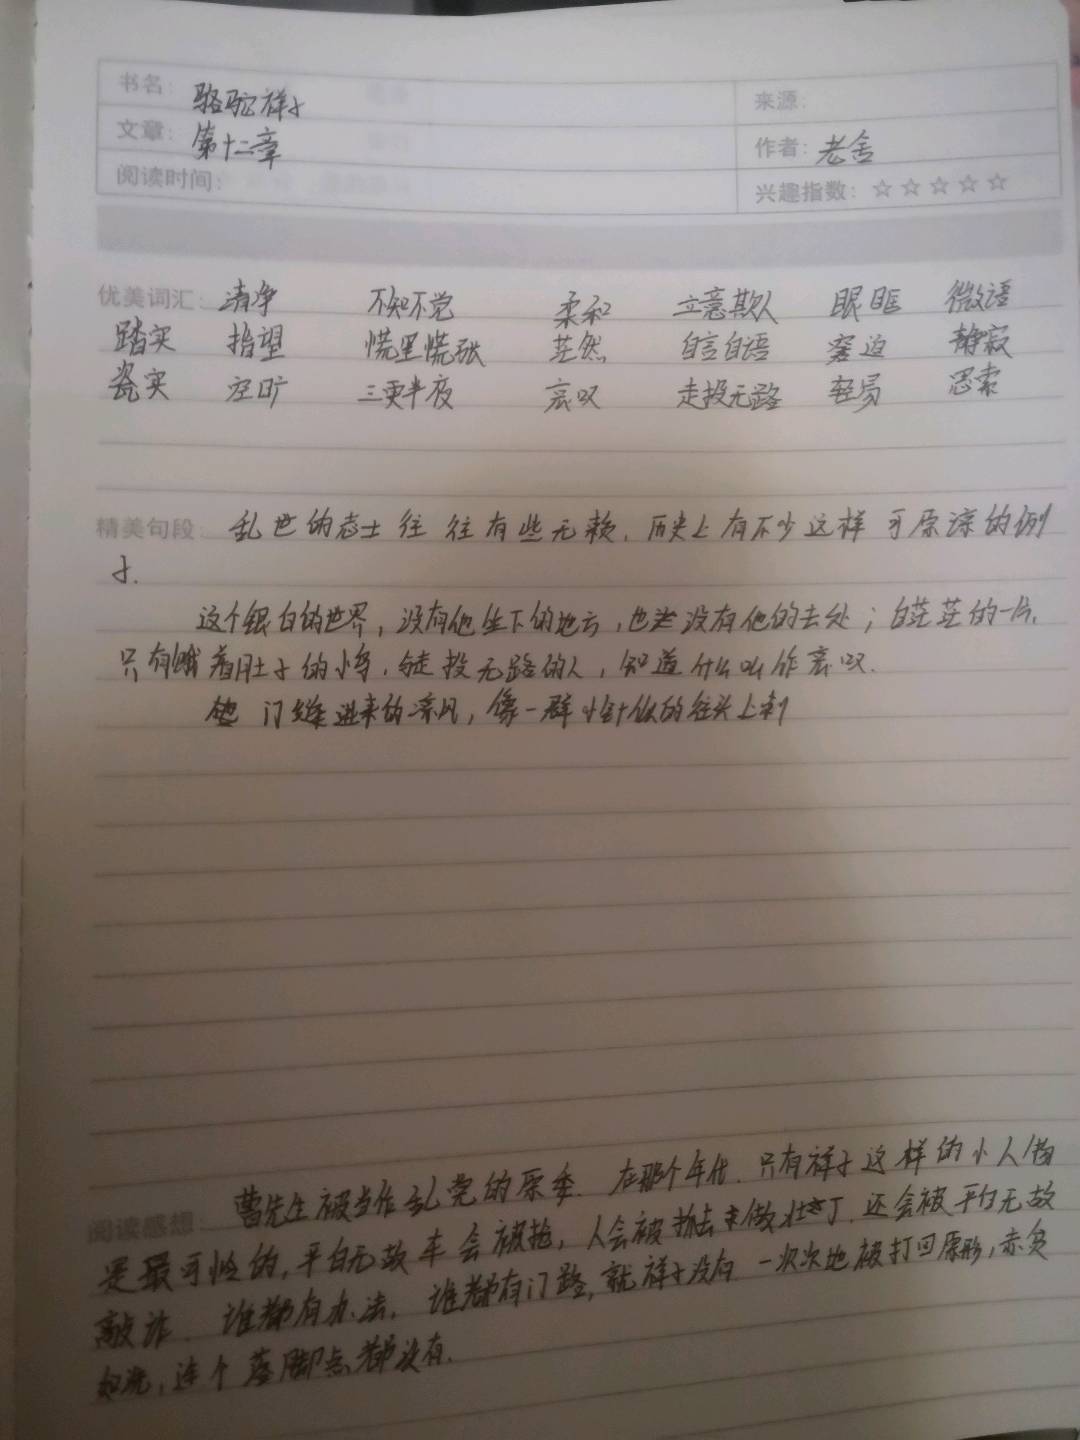 书名：骆驼祥子
来源：
文章：第十二章
作者：老舍
阅读时间：
兴趣指数：☆☆☆☆☆
优美词汇：清净 不知不觉 柔和 立意欺人 眼眶 微语
踏实 指望 慌里慌张 茫然 自言自语 窘迫 静寂
瓷实 空旷 三更半夜 哀叹 走投无路 轻易 思索
精美句段：乱世的志士往往有些无赖，历史上有不少这样可原谅的例
子.
这个银白的世界，没有他坐下的地方，也没有他的去处；白茫茫的一片，
只有饿着肚子的小鸟，与走投无路的人，知道什么叫作哀叹.
门缝进来的凉风，像一群小针似的往头上刺
曹先生被当作乱党的原委. 在那个年代，只有祥子这样的小人物
阅读感想：
是最可怜的，平白无故车会被抢，人会被抓去做壮丁，还会被平白无故
敲诈. 谁都有办法，谁都有门路，就祥子没有 一次次地被打回原形，赤贫
如洗，连个落脚点都没有.